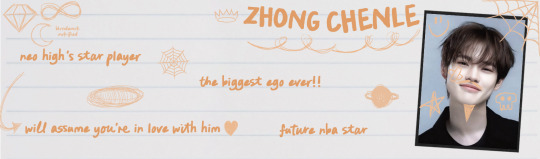 ZHONG CHENLE
neo high's star player
the biggest ego ever!!
will assume you're in love with him
future nba star